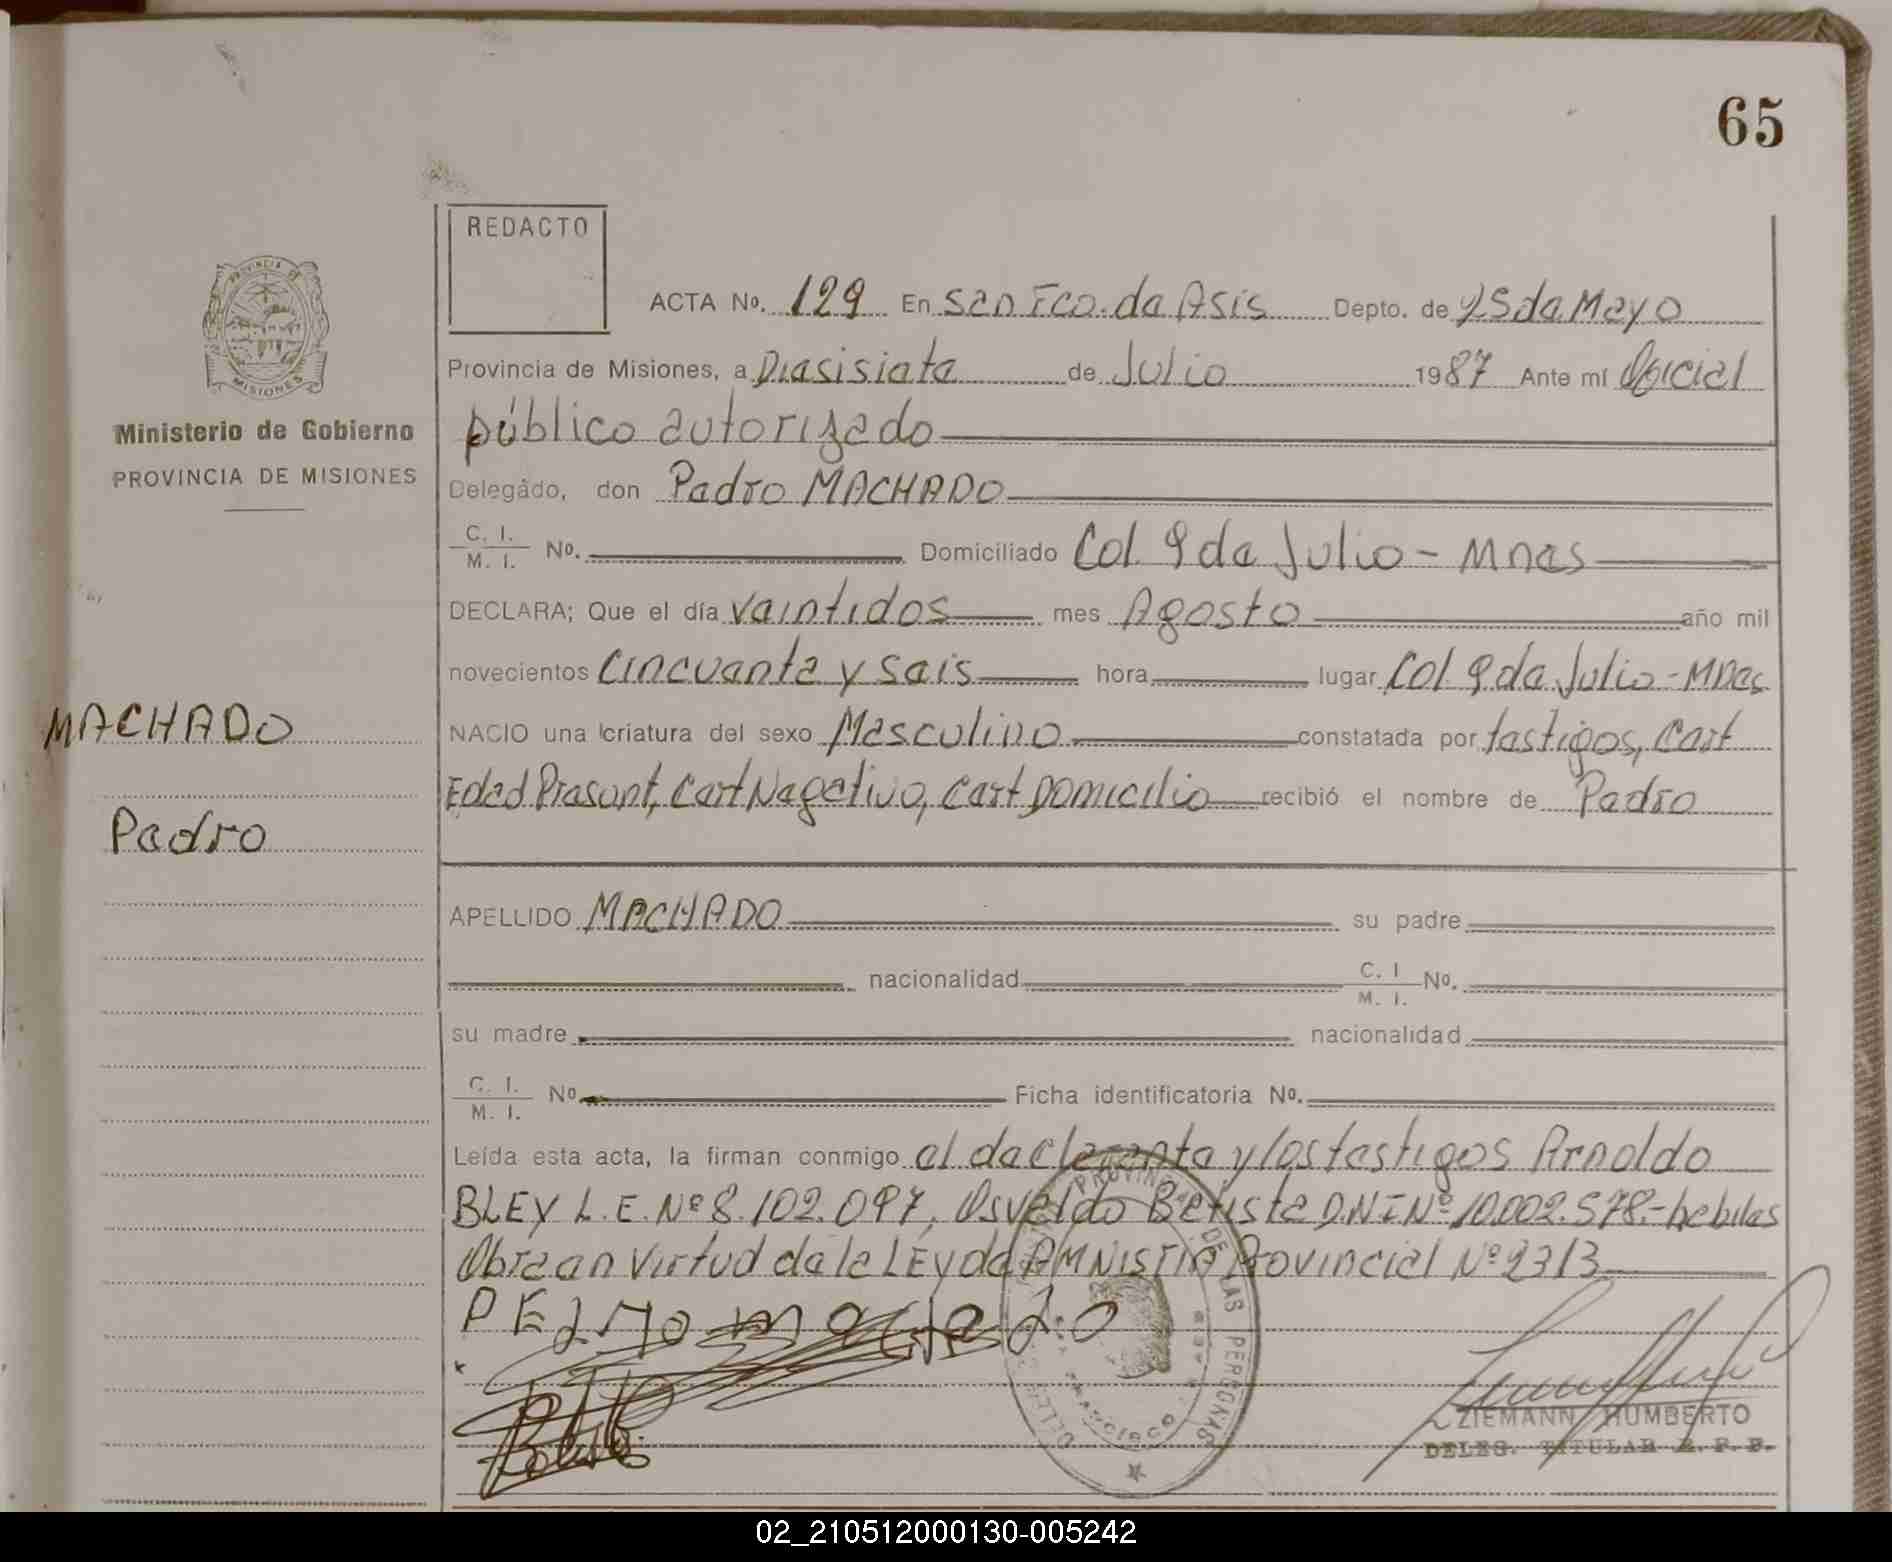 65
REDACTO
ACTA Nº. 129 En San Fco. de Asis Depto. de 25 de Mayo
Provincia de Misiones, a Diesisiete de Julio 1987 Ante mí Oficial
público autorizado
Ministerio de Gobierno
PROVINCIA DE MISIONES
Delegado, don Pedro MACHADO
C. I. M. I. Nº. Domiciliado Col. 9 de Julio - Mnes
DECLARA; Que el día veintidos mes Agosto año mil
novecientos cincuenta y seis hora lugar Col. 9 de Julio - Mnes
MACHADO
NACIO una criatura del sexo Masculino constatada por testigos, Cert
Edad Presunt, Cert Negativo, Cert Domicilio recibió el nombre de Pedro
Pedro
APELLIDO MACHADO su padre
nacionalidad C. I M. I. Nº.
su madre nacionalidad
C. I. M. I. Nº Ficha identificatoria Nº.
Leída esta acta, la firman conmigo el declarante y los testigos Arnoldo
BLEY L.E. Nº 8.102.097, Osvaldo Batista D.N.I Nº 10.002.578.- habiles
Obra en virtud de la LEY de AMNISTIA Provincial Nº 2313
PEdro machado
PROVINCIAL DE LAS PERSONAS
FRANCISCO
ZIEMANN HUMBERTO
DELEG. TITULAR R. P. P.
02_210512000130-005242